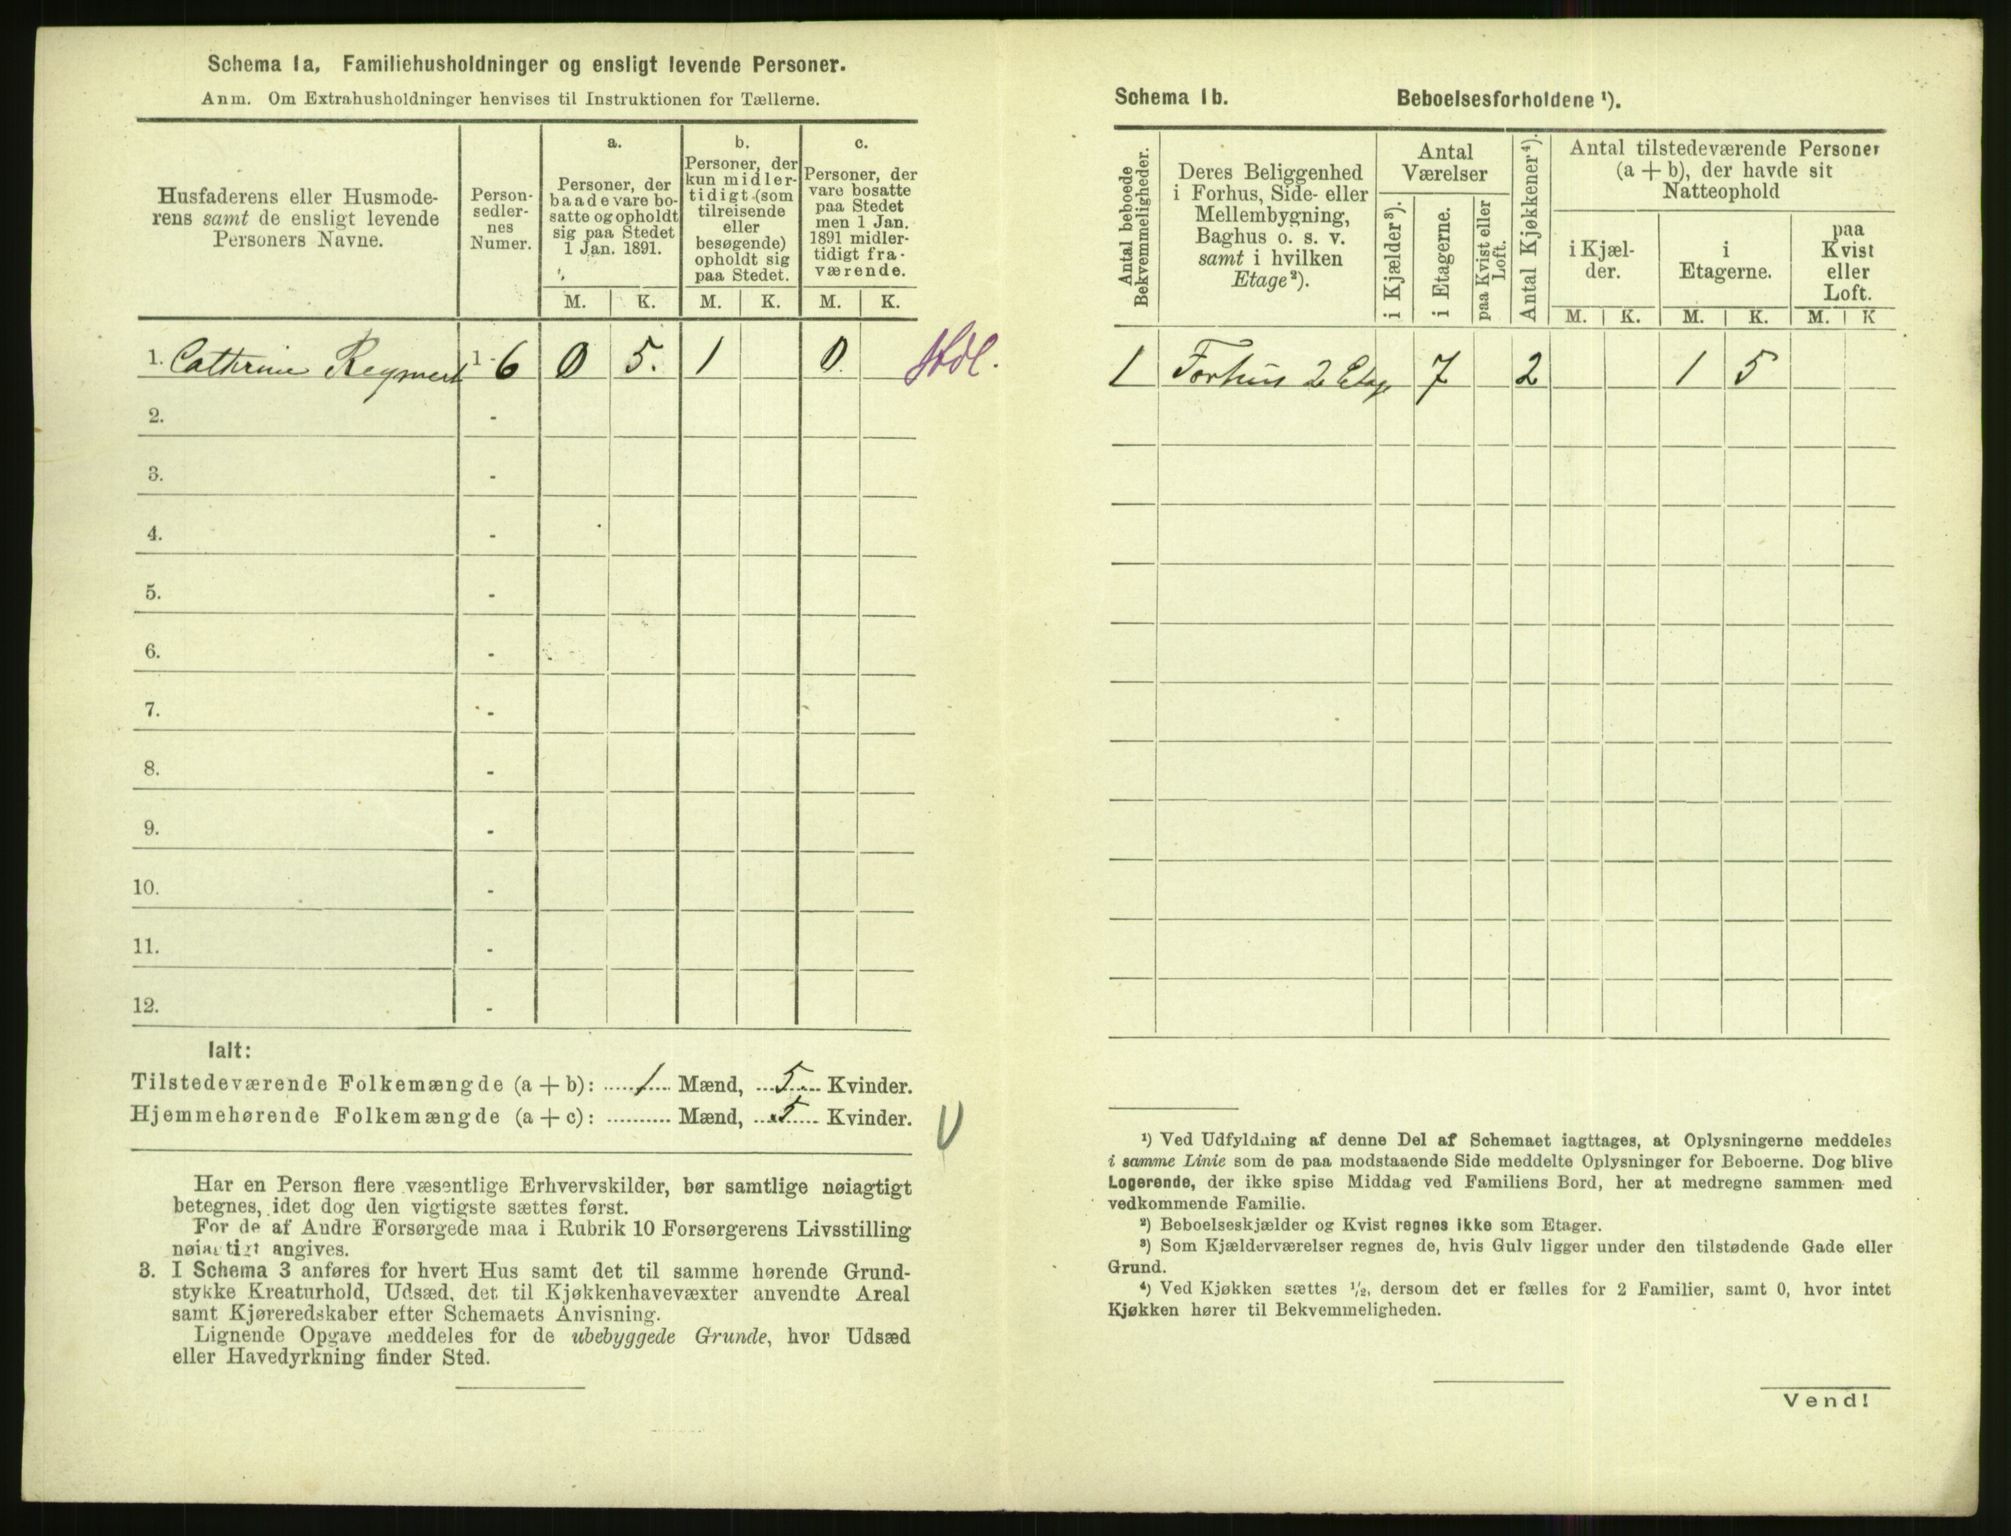 Schema 1a. Familiehusholdninger og ensligt levende Personer.
Anm. Om Extrahusholdninger henvises til Instruktionen for Tællerne.
Husfaderens eller Husmode-
rens samt de ensligt levende
Personers Navne.
Person-
sedler-
nes
Numer.
a.
Personer, der
baade vare bo-
satte og opholdt
sig paa Stedet
1 Jan. 1891.
b.
Personer, der
kun midler-
tidigt (som
tilreisende
eller
besøgende)
opholdt sig
paa Stedet.
c.
Personer, der
vare bosatte
paa Stedet
men 1 Jan.
1891 midler-
tidigt fra-
værende.
M. K. M. K. M. K.
1. Cathrine 1 - 6 0 5. 1 0
2. -
3. -
4. -
5. -
6. -
7. -
8. -
9. -
10. -
11. -
12. -
Ialt:
Tilstedeværende Folkemængde (a + b): 1 Mænd, 5 Kvinder.
Hjemmehørende Folkemængde (a + c): Mænd, 5 Kvinder.
Har en Person flere væsentlige Erhvervskilder, bør samtlige nøiagtigt
betegnes, idet dog den vigtigste sættes først.
For de af Andre Forsørgede maa i Rubrik 10 Forsørgerens Livsstilling
nøiagtigt angives.
3. I Schema 3 anføres for hvert Hus samt det til samme hørende Grund-
stykke Kreaturhold, Udsæd, det til Kjøkkenhavevæxter anvendte Areal
samt Kjøreredskaber efter Schemaets Anvisning.
Lignende Opgave meddeles for de ubebyggede Grunde, hvor Udsæd
eller Havedyrkning finder Sted.
Schema 1b. Beboelsesforholdene ¹).
Antal beboede
Bekvemmeligheder.
Deres Beliggenhed
i Forhus, Side- eller
Mellembygning,
Baghus o. s. v.
samt i hvilken
Etage²).
Antal
Værelser
i Kjælder³).
i Etagerne.
paa Kvist eller
Loft.
Antal Kjøkkener⁴).
Antal tilstedeværende Personer
(a + b), der havde sit
Natteophold
i Kjæl-
der.
i
Etagerne.
paa
Kvist
eller
Loft.
M. K. M. K. M. K
1 Forhus 2 Etage 7 2 1 5
¹) Ved Udfyldning af denne Del af Schemaet iagttages, at Oplysningerne meddeles
i samme Linie som de paa modstaaende Side meddelte Oplysninger for Beboerne. Dog blive
Logerende, der ikke spise Middag ved Familiens Bord, her at medregne sammen med
vedkommende Familie.
²) Beboelseskjælder og Kvist regnes ikke som Etager.
³) Som Kjælderværelser regnes de, hvis Gulv ligger under den tilstødende Gade eller
Grund.
⁴) Ved Kjøkken sættes ¹/₂, dersom det er fælles for 2 Familier, samt 0, hvor intet
Kjøkken hører til Bekvemmeligheden.
Vend!